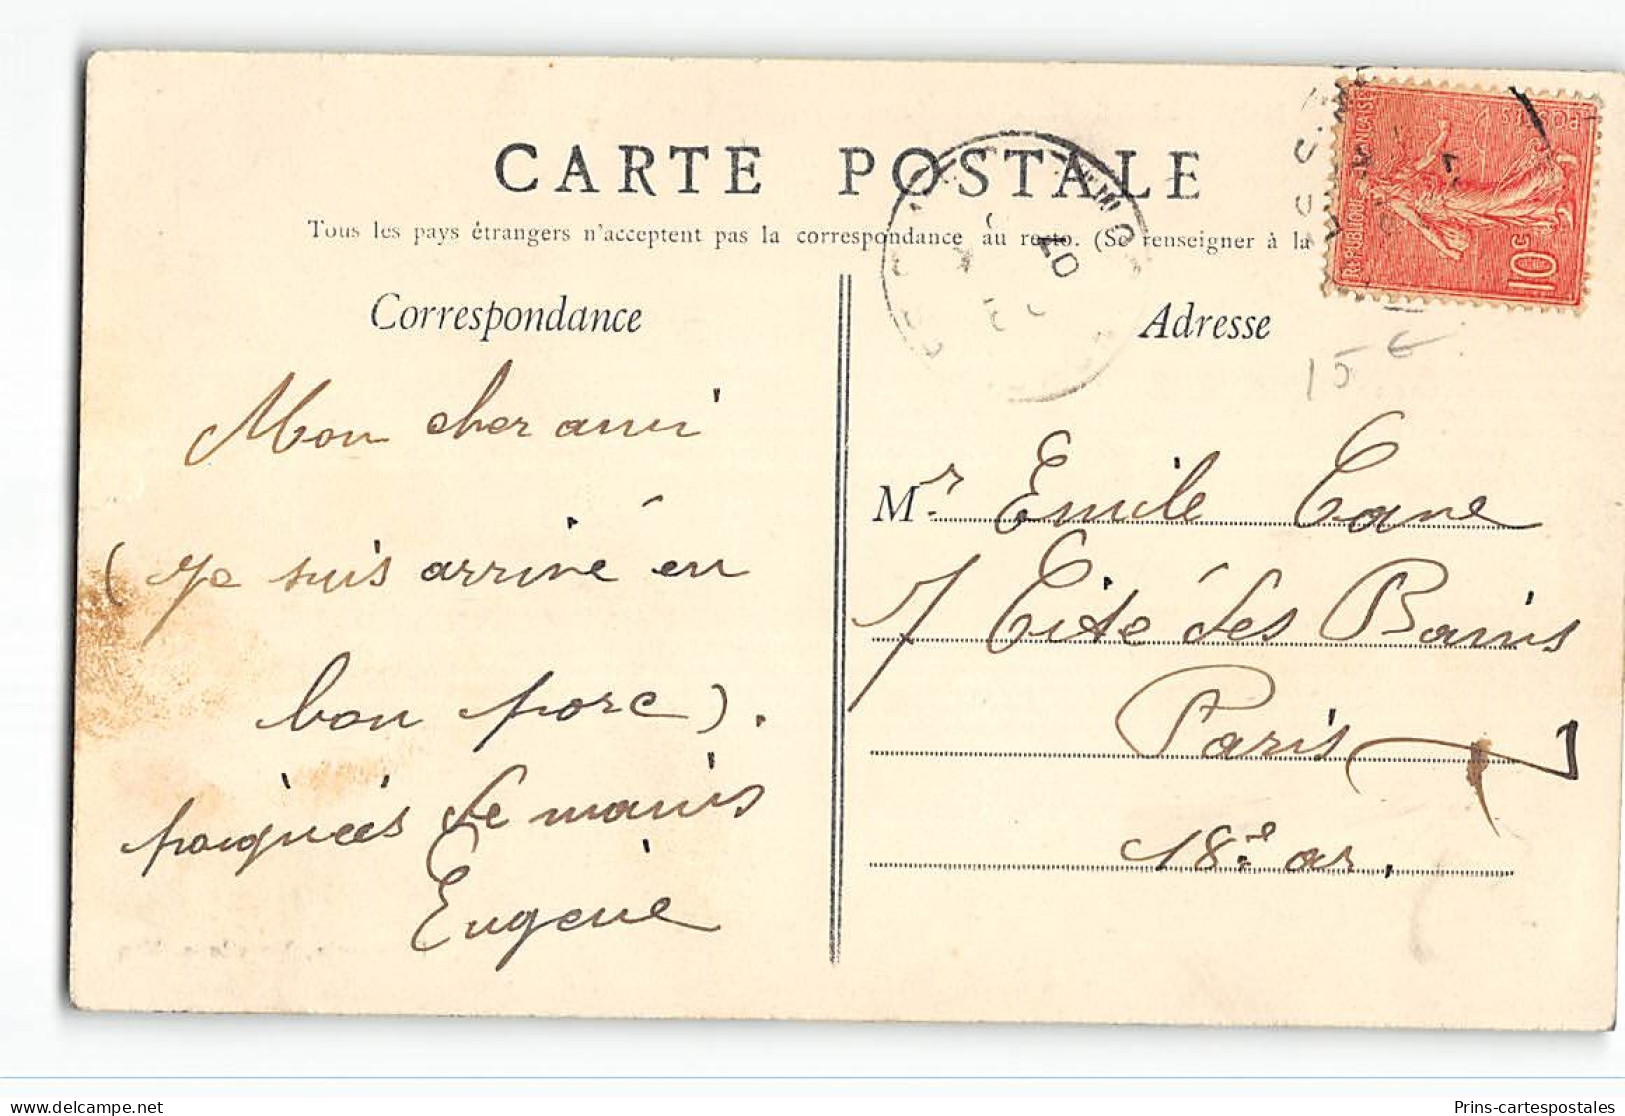 CARTE POSTALE
Tous les pays étrangers n'acceptent pas la correspondance au recto. (Se renseigner à la
Correspondance
Mon cher ami
(Je suis arrivé en
bon porc).
poignées de mains
Eugène
Adresse
15 €
Mr. Emile Cane
7 Cité des Bains
Paris
18.e ar.
RÉPUBLIQUE FRANÇAISE
POSTES
10c
delcampe.net
Prins-cartespostales